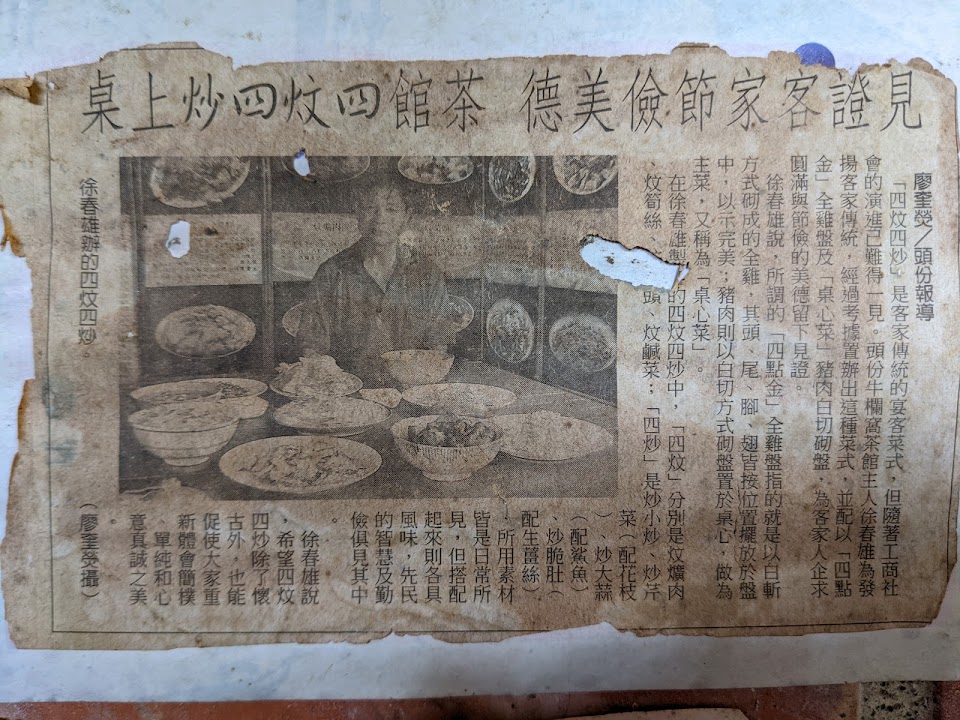 見證客家節儉美德 茶館四炆四炒上桌
廖奎熒/頭份報導
「四炆四炒」是客家傳統的宴客菜式,但隨著工商社
會的演進已難得一見。頭份牛欄窩茶館主人徐春雄為發
揚客家傳統,經過考據置辦出這種菜式,並配以「四點
金」全雞盤及「桌心菜」豬肉白切砌盤,為客家人企求
圓滿與節儉的美德留下見證。
徐春雄說,所謂的「四點金」全雞盤指的就是以白斬
方式砌成的全雞,其頭、尾、腳、翅皆按位置擺放於盤
中,以示完美;豬肉則以白切方式砌盤置於桌心,做為
主菜,又稱為「桌心菜」。
在徐春雄製的四炆四炒中,「四炆」分別是炆爌肉
、炆筍絲、頭、炆鹹菜;「四炒」是炒小炒、炒芹
菜(配花枝
)、炒大蒜
(配鯊魚)
、炒脆肚(
配生薑絲)
,所用素材
皆是日常所
見,但搭配
起來則各具
風味,先民
的智慧及勤
儉俱見其中
。
徐春雄說
,希望四炆
四炒除了懷
古外,也能
促使大家重
新體會簡樸
、單純和心
意真誠之美
。
徐春雄辦的四炆四炒。
(廖奎熒攝)